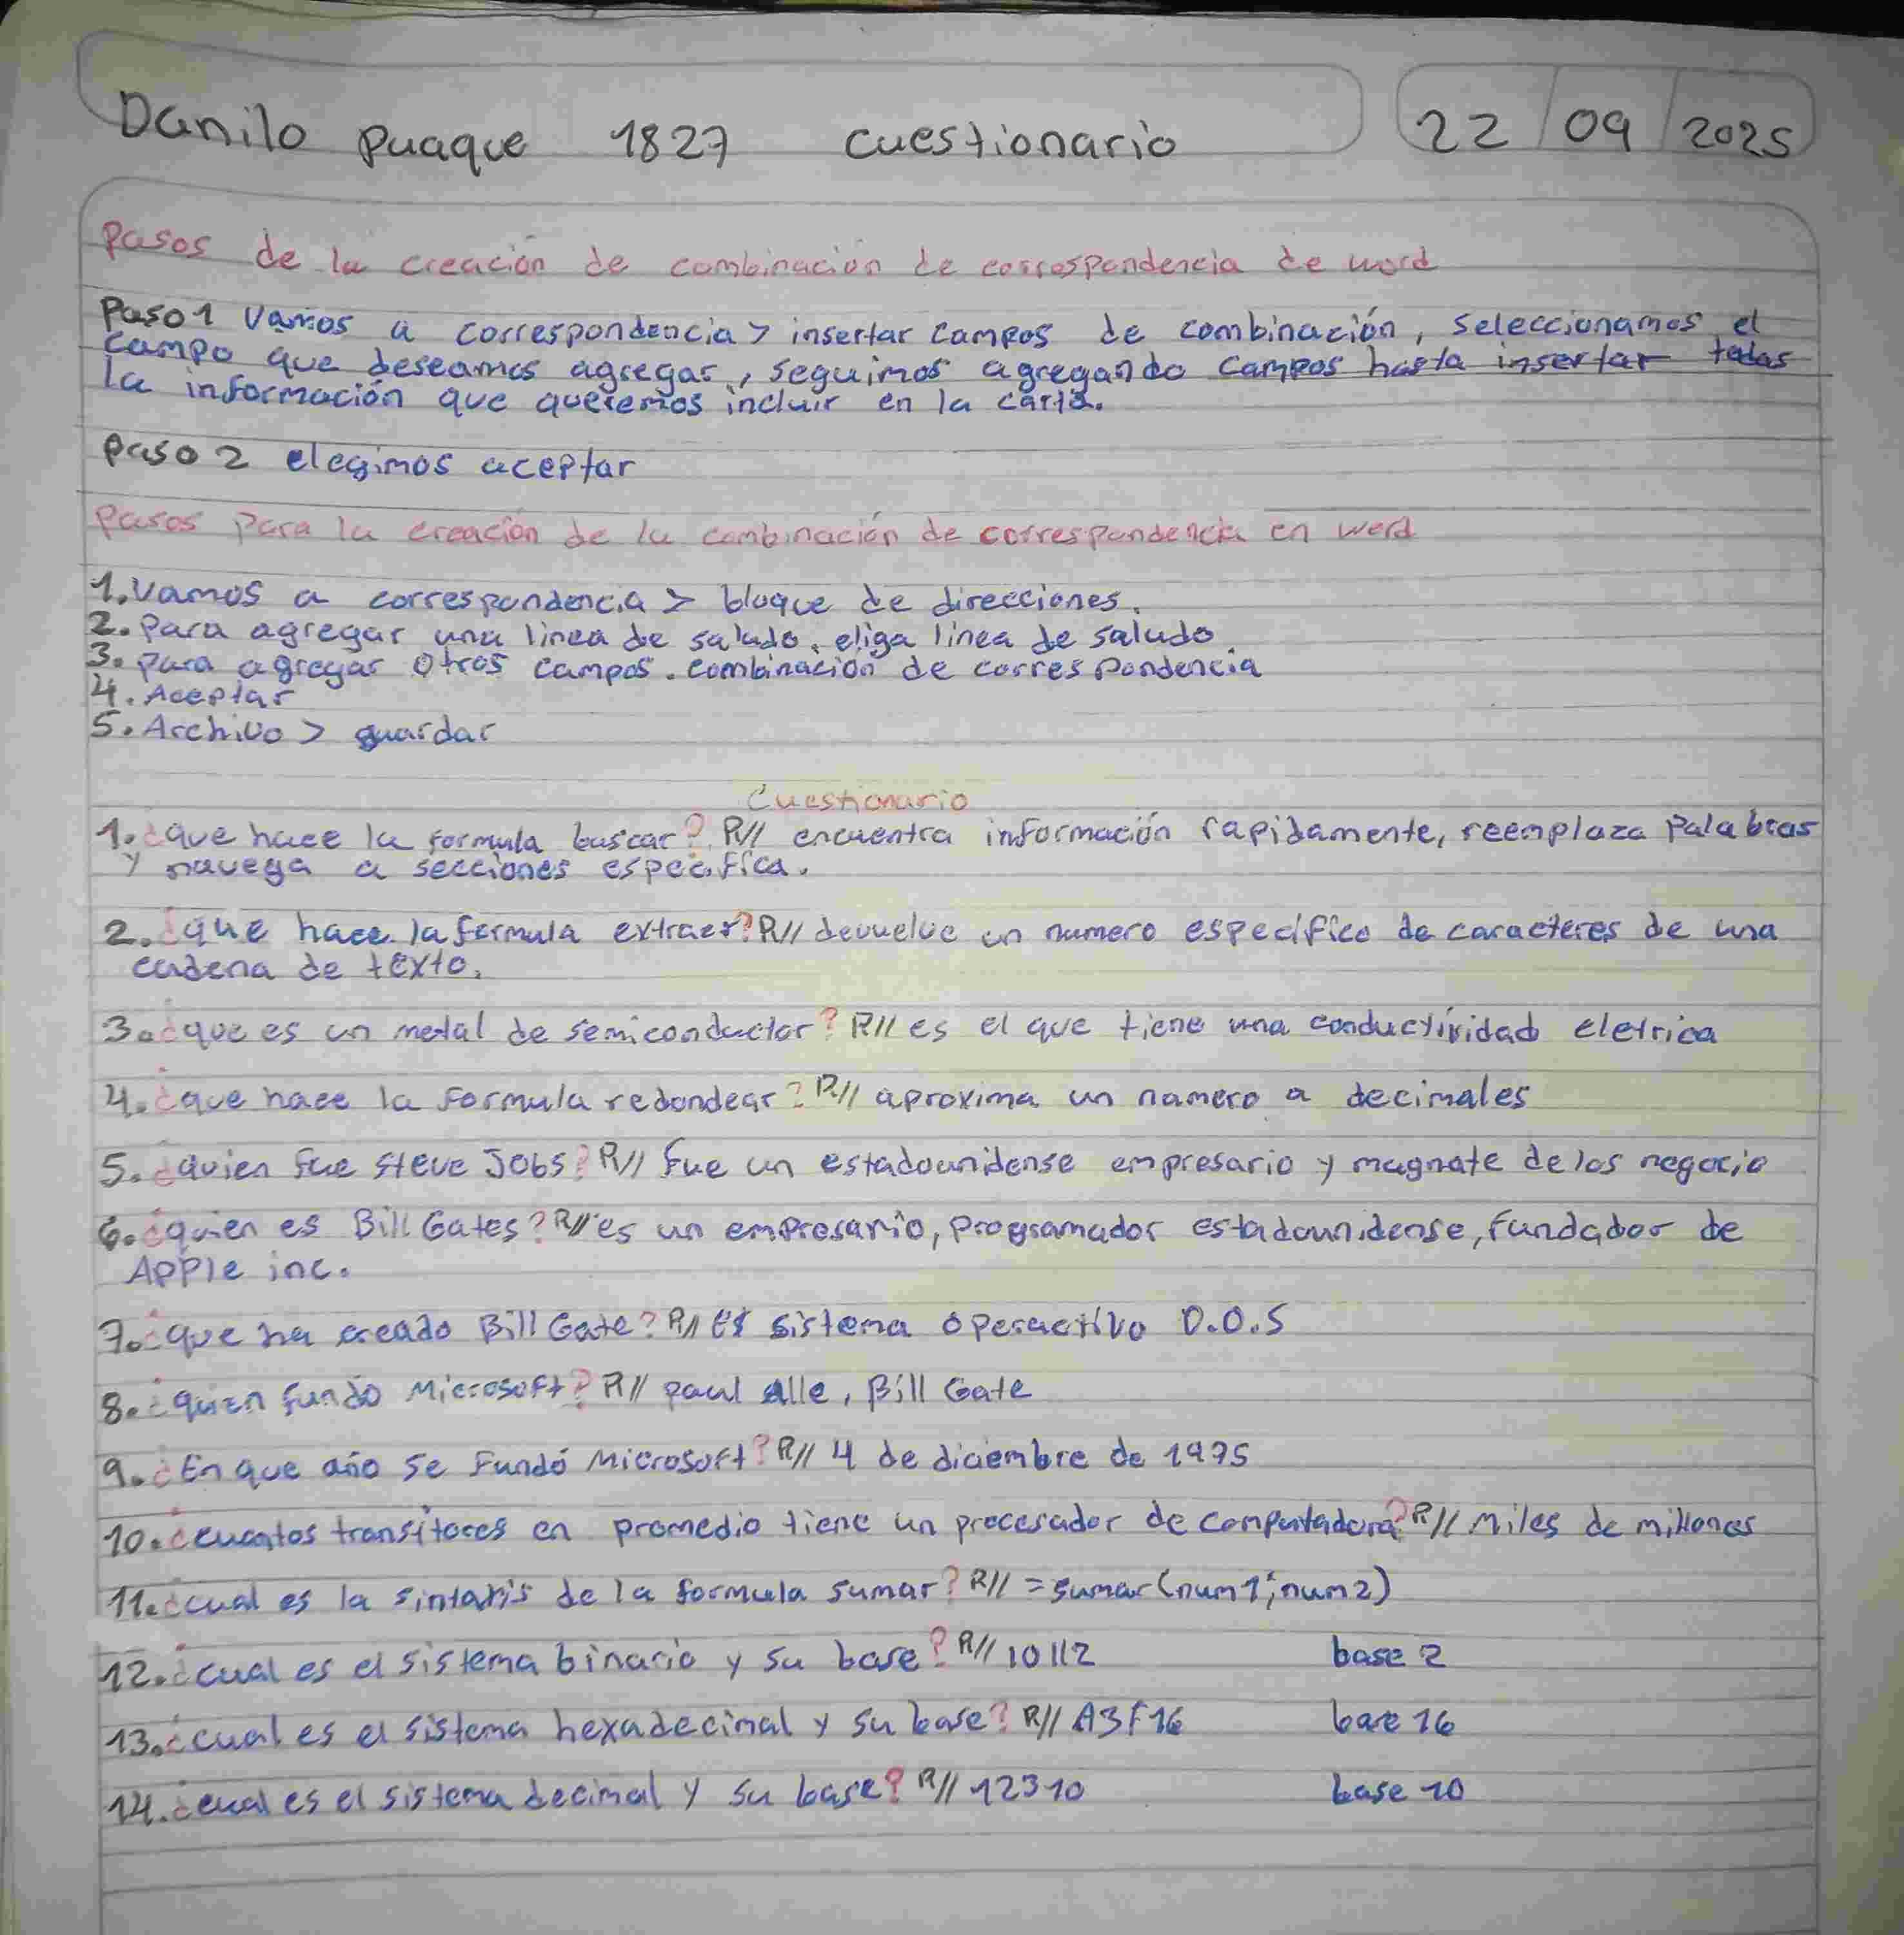 Danilo Puaque 1827 cuestionario 22/09/2025
Pasos de la creación de combinación de correspondencia de word
Paso 1 Vamos a correspondencia > insertar campos de combinación, seleccionamos el
campo que deseamos agregar, seguimos agregando campos hasta insertar todas
la información que queremos incluir en la carta.
Paso 2 elegimos aceptar
Pasos para la creación de la combinación de correspondencia en word
1. Vamos a correspondencia > bloque de direcciones.
2. Para agregar una linea de saludo, eliga linea de saludo
3. para agregar otros campos. combinación de correspondencia
4. Aceptar
5. Archivo > guardar
Cuestionario
1. ¿que hace la formula buscar? R// encuentra información rapidamente, reemplaza palabras
y navega a secciones especifica.
2. ¿que hace la formula extraer? R// devuelve un numero especifico de caracteres de una
cadena de texto.
3. ¿que es un metal de semiconductor? R// es el que tiene una conductividad eletrica
4. ¿que hace la formula redondear? R// aproxima un namero a decimales
5. ¿quien fue steve Jobs? R// fue un estadounidense empresario y magnate de los negocio
6. ¿quien es Bill Gates? R// es un empresario, programador estadounidense, fundador de
Apple inc.
7. ¿que ha creado Bill Gate? R// El sistema operactivo D.O.S
8. ¿quien fundo Microsoft? R// paul alle, Bill Gate
9. ¿En que año se fundó Microsoft? R// 4 de diciembre de 1975
10. ¿cuantos transitores en promedio tiene un procesador de computadora? R// Miles de millones
11. ¿cual es la sintaxis de la formula sumar? R// =sumar(num1;num2)
12. ¿cual es el sistema binario y su base? R// 10112 base 2
13. ¿cual es el sistema hexadecimal y su base? R// A3F16 base 16
14. ¿cual es el sistema decimal y su base? R// 12310 base 10